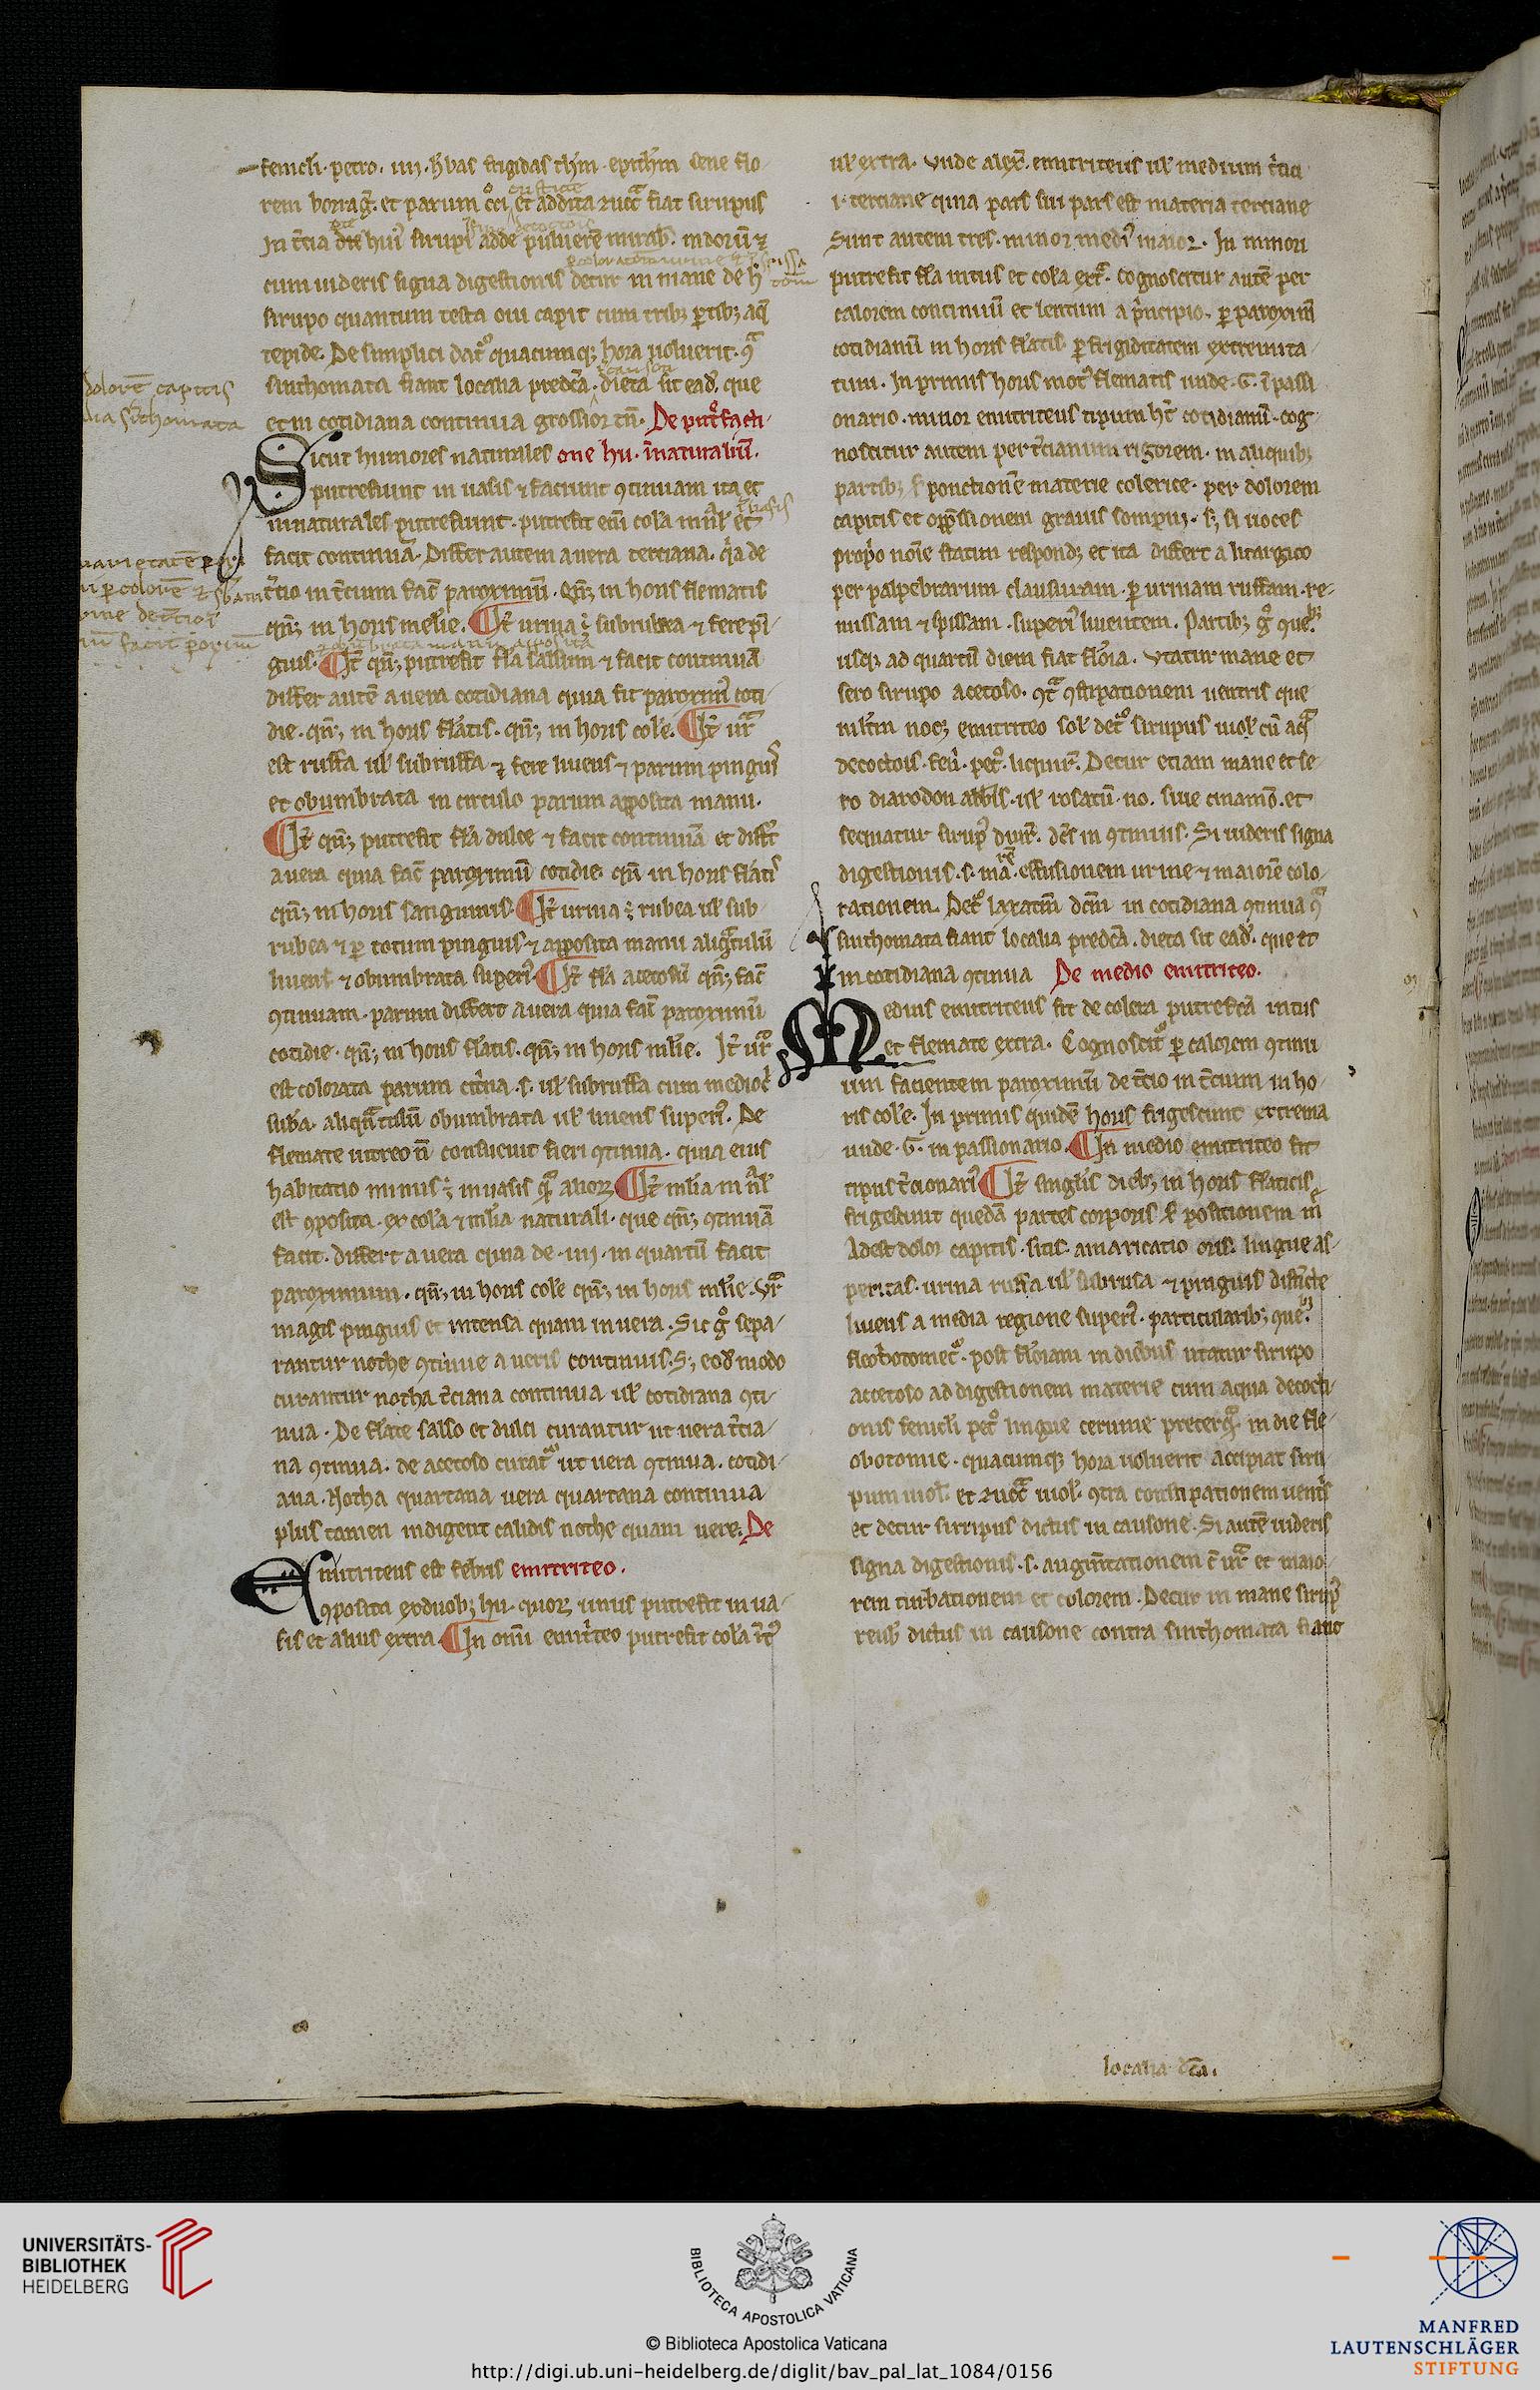 fenicli · petro · iiij · h̄bas frigidas thim · epith̄m sene flo-
rem borrag̃ · et parum o̊ci et addita zucc̃ fiat sirupus
In t̃cia die hui᷒ sirupi adde puluerē mirab · indorū ⁊
cum uideris signa digestionis detur in mane de h᷒
sirupo quantum testa oui capit cum trib; ꝑtib; aq̄
tepide · De simplici dat᷒ quacumq; hora uoluerit · 9ᵃ
sinthomata fiant localia predc̃a · dieta sit ead̄ · que
et in cotidiana continua grossior tn̄ · De put᷒facti-
Sicut humores naturales one hu · īnaturaliū ·
putrefiunt in uasis ⁊ faciunt 9tinuam ita et
innaturales putrefiunt · putrefit eni cola innãl et
facit continuā · Differt autem a uera terciana · q̃a de
t̃cio in t̃cium fac̄ paroximū · qn̄; in horis flematis
qn̄; in horis melie · It̃ urina ē subrubea ⁊ fere pi-
guis · It̃ qn̄; putrefit fla salsum ⁊ facit continuā
differt autē a uera cotidiana quia fit paroxim᷒ coti-
die · qn̄; in horis flatis · qn̄; in horis cole · It̃ urᵃ
est ruffa ul subruffa ⁊ fere liuens ⁊ parum pinguis
et obumbrata in circulo parum apposita manu ·
It̃ qn̄; putrefit fla dulce ⁊ facit continuā et differt
a uera quia fac̄ paroximū cotidie · qn̄ in horis flatis
qn̄; in horis sanguinis · It̃ urina ē rubea ul sub-
rubea ⁊ ꝑ totum pinguis ⁊ apposita manu aliqᵃtulū
liuens ⁊ obumbrata superi᷒ · It̃ fla acetosū qn̄; fac̄
9tinuam · parum differt a uera quia fac̄ paroximū
cotidie · qn̄; in horis flatis · qn̄; in horis mlie · It̃ urᵃ
est colorata parum cit̃na · s · ul subruffa cum medioc̃
sub̄a · aliqᵃtulū obumbrata ul liuens superi᷒ · De
flemate uitreo n̄ consueuit fieri 9tinua · quia eius
habitatio minus ē in uasis qᵃ alioꝝ · It̃ mlia innãl
est 9posita · ex cola ⁊ mlia naturali · que qn̄; 9tinuā
facit · differt a uera quia de · iiij · in quartū facit
paroximum · qn̄; in horis cole qn̄; in horis mlie · Vrᵃ
magis pinguis et intensa quam in uera · Sic g̊ sepa-
rantur nothe 9tinue a ueris continuis · S; eod̄ modo
curantur notha t̃ciana continua ul cotidiana 9ti-
nua · De flate salso et dulci curantur ut uera t̃cia-
na 9tinua · de acetoso curat᷒ ut uera 9tinua · cotidi-
ana · Notha quartana uera quartana continua
plus tamen indigent calidis nothe quam uere · De
Emitriteus est febris emitriteo ·
9posita ex duob; hu · quoꝝ unus putrefit in ua-
sis et alius extra · In omni emit̃teo putrefit cola it᷒
dolorē capitis
sīthomata
ul extra · Vnde alex̃ · emitriteus ul medium t̃cia
i · terciane quia pars sui pars est materia terciane
Sunt autem tres · minor medi᷒ maior · In minori
putrefit fla intus et cola extᵃ · Cognoscitur autē per
calorem continuū et lentum a p̃ncipio · ꝑ paroximū
cotidianū in horis flatis · ꝑ frigiditatem extremita-
tum · In primis horis mot᷒ flematis unde · G · i passi-
onario · minor emitriteus tipum ht̃ cotidianū · cog-
noscitur autem per t̃cianum rigorem · in aliquib;
partib; s ponctionē materie colerice · per dolorem
capitis et opp̃ssionem grauis sompni · s; si uoces
prop̃o noīe statim respond; et ita differt a litargico
per palpebrarum clausuram · ꝑ urinam ruffam · re-
missam ⁊ spissam · superi᷒ liuentem · Partib; g̊ que
usq; ad quartū diem fiat floīa · Vtatur mane et
sero sirupo acetoso · 9ᵃ 9stipationem uentris que
mltm noc; emitriteo sol det᷒ sirupus uiol cū aqᵃ
decoctois · feni᷒ · pet᷒ · liquir̃ · Detur etiam mane et se-
ro diarodon abb̄is · ul rosatū · no · siue cinamō · et
sequatur sirup᷒ diur̃ · dc̄s in 9tinuis · Si uideris signa
digestionis · s · mã · effusionem urine ⁊ maiorē colo-
rationem · Det᷒ laxatiū dc̄m in cotidiana 9tinua 9ᵃ
sinthomata fiant localia predc̃a · dieta sit ead̄ · que et
in cotidiana 9tinua De medio emitriteo ·
Medius emitriteus fit de colera putrefc̃a intus
et flemate extra · Cognoscit᷒ ꝑ calorem 9tinu-
um facientem paroximū de t̃cio in t̃cium in ho-
ris cole · In primis quidē horis frigescunt extrema
unde · G · in passionario · In medio emitriteo fit
tipus t̃cionari᷒ · It̃ singlis dieb; in horis flaticis
frigescunt quedā partes corporis s positionem m̄
Adest dolor capitis · sitis · amaricatio oris · lingue as-
peritas · urina ruffa ul subrufa ⁊ pinguis distincte
liuens a media regione superi᷒ · particularib; que
flobotomet᷒ · post floīam in dieb᷒ utatur sirupo
accetoso ad digestionem materie cum aqua decocti-
onis fenicli pet᷒ lingue ceruine preterqᵃ in die fle-
obotomie · quacumq; hora uoluerit accipiat siru-
pum uiol · et zucc̃ uiol · 9tra constipationem uentris
et detur sirupus dictus in causone · Si autē uideris
signa digestionis · s · augm̄tationem t̄ urᵃ et maio-
rem turbationem et colorem · Detur in mane sirup᷒
reub᷒ dictus in causone contra sinthomata fiant
localia dc̄a ·
UNIVERSITÄTS-
BIBLIOTHEK
HEIDELBERG
BIBLIOTECA APOSTOLICA VATICANA
© Biblioteca Apostolica Vaticana
http://digi.ub.uni-heidelberg.de/diglit/bav_pal_lat_1084/0156
MANFRED
LAUTENSCHLÄGER
STIFTUNG